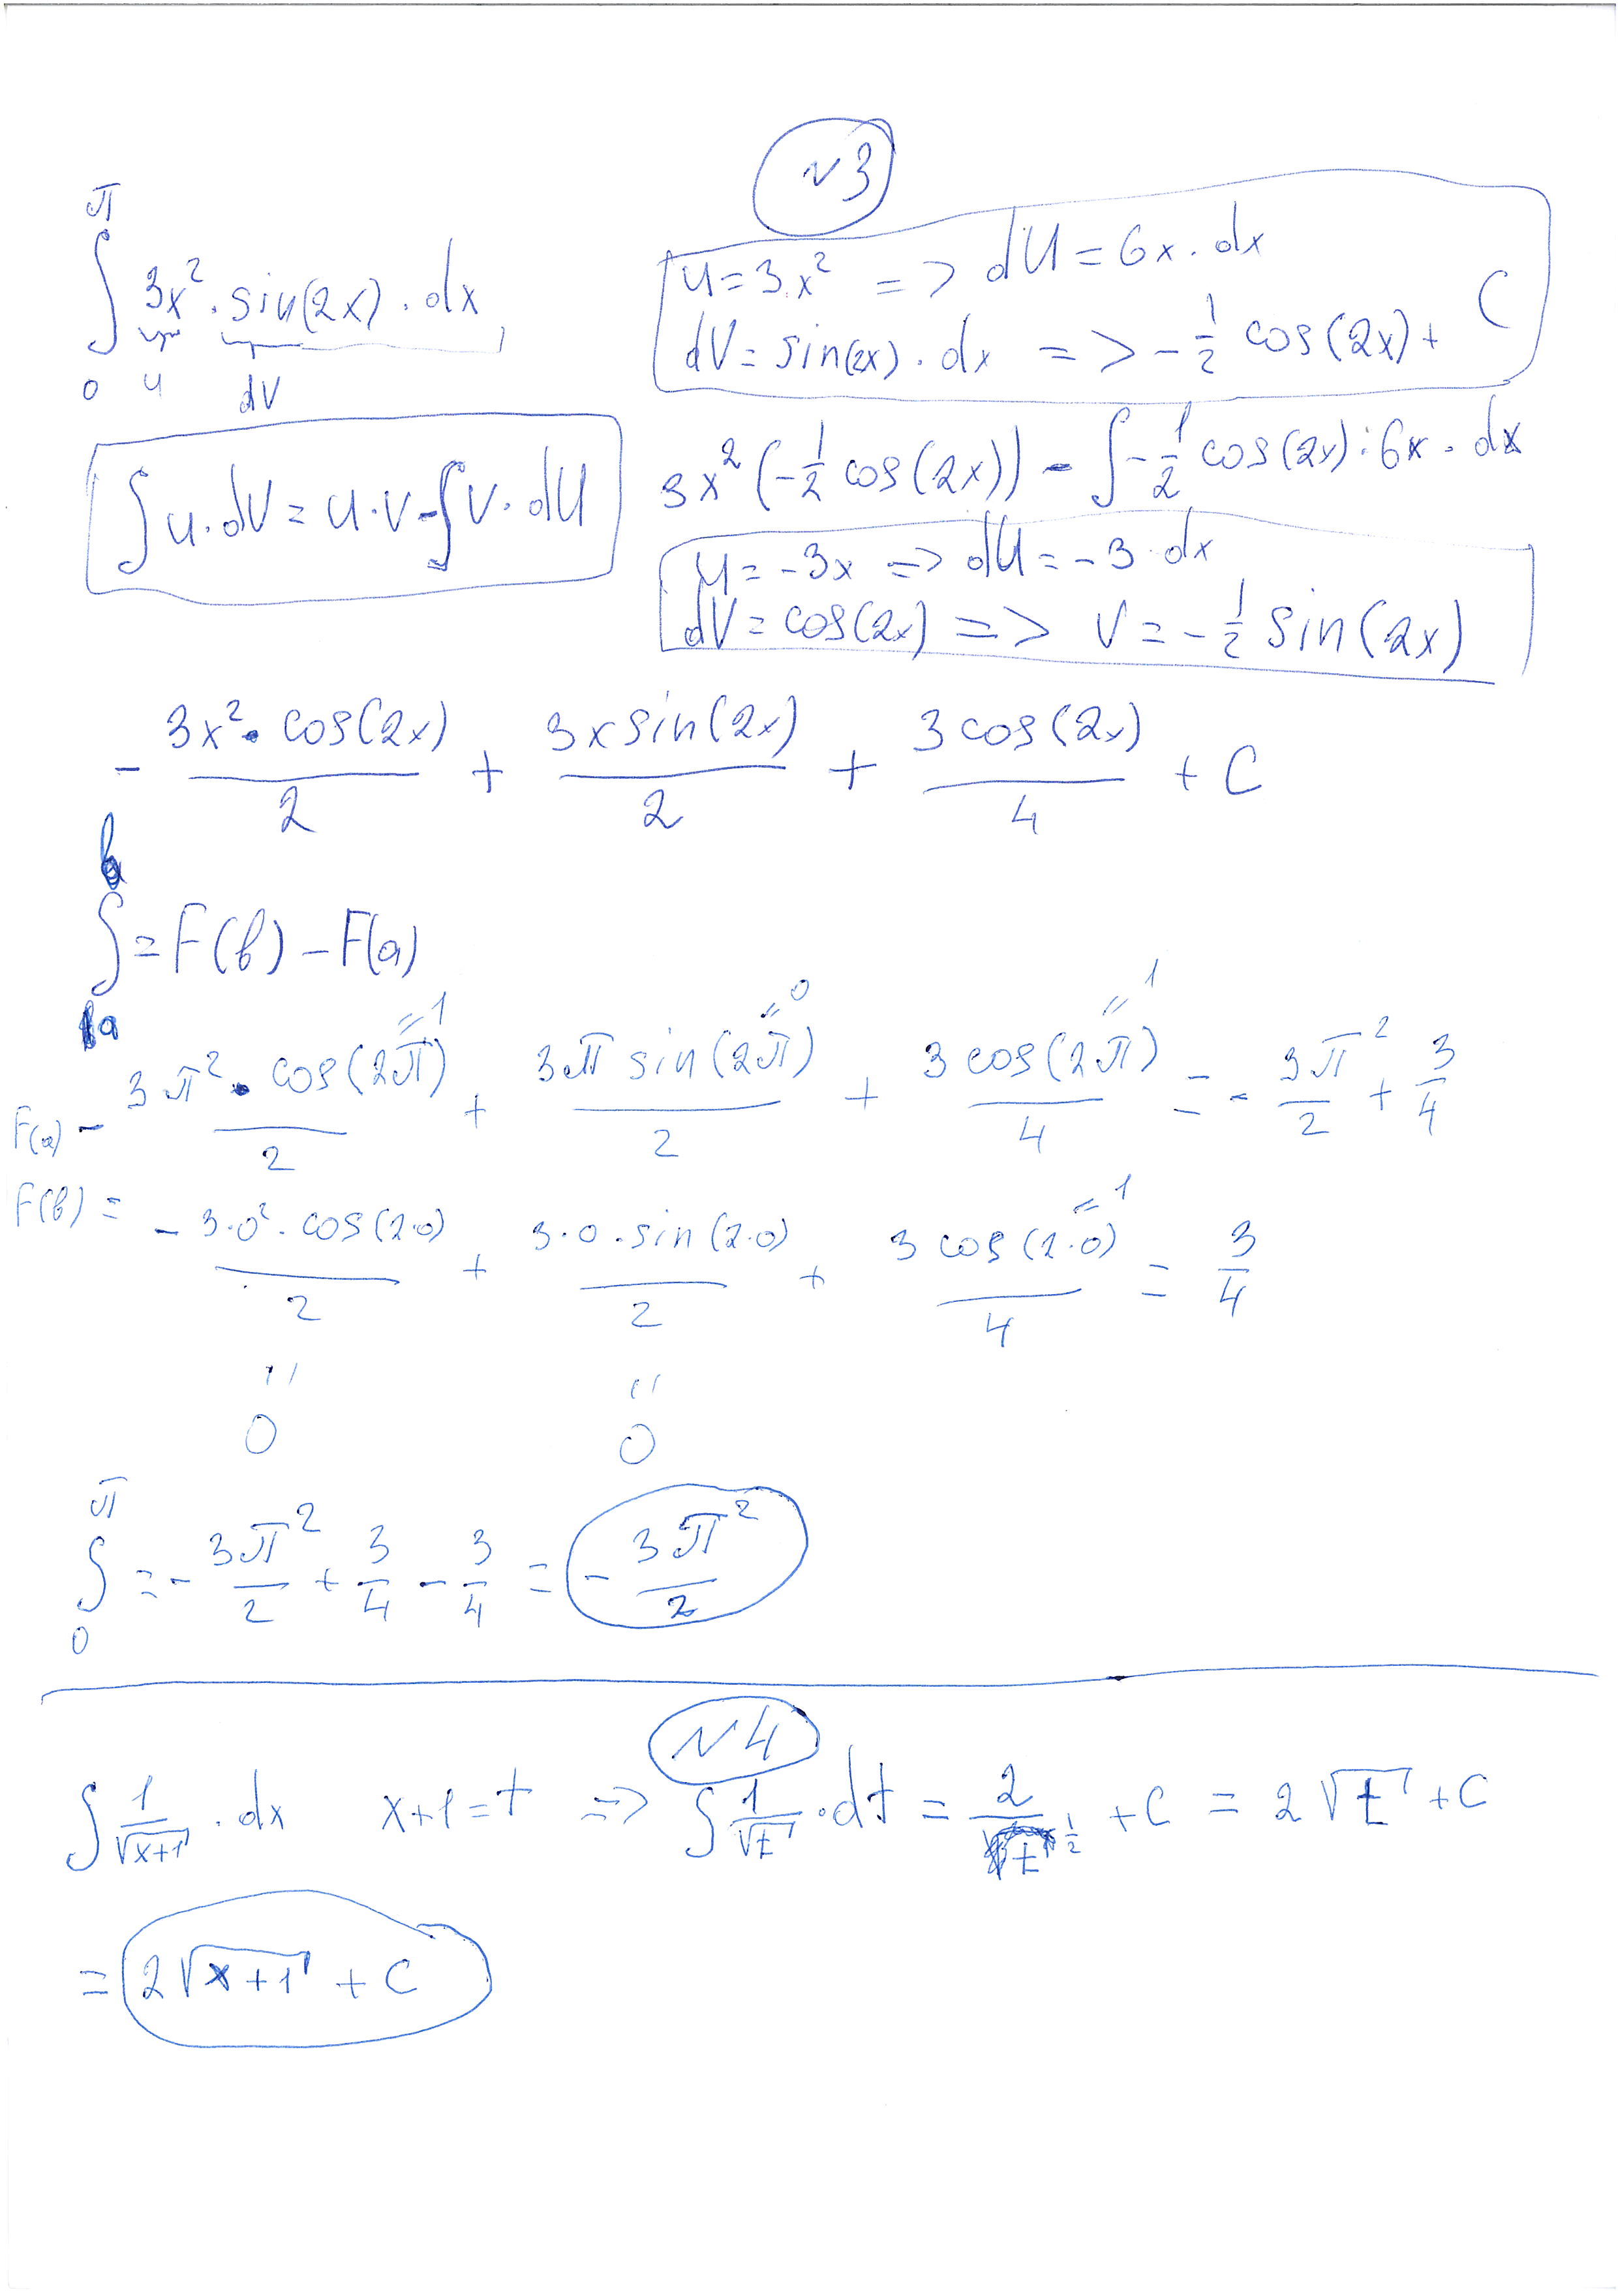 №3
∫₀^π 3x² · sin(2x) · dx
u dV
u = 3.x² => dU = 6x · dx
dV = sin(2x) · dx => -1/2 cos(2x) + C
∫u · dV = u · v - ∫v · dU
3x² (-1/2 cos(2x)) - ∫ -1/2 cos(2x) · 6x · dx
u = -3x => dU = -3 dx
dV = cos(2x) => V = -1/2 sin(2x)
- 3x² · cos(2x)/2 + 3x sin(2x)/2 + 3 cos(2x)/4 + C
∫ₐ^b = F(b) - F(a)
=1 =0 =1
F(a) - 3π² · cos(2π)/2 + 3π sin(2π)/2 + 3 cos(2π)/4 = - 3π²/2 + 3/4
=1
F(b) = - 3·0² · cos(2·0)/2 + 3·0 · sin(2·0)/2 + 3 cos(2·0)/4 = 3/4
" "
0 0
∫₀^π = - 3π²/2 + 3/4 - 3/4 = - 3π²/2
№4
∫ 1/√(x+1) · dx x+1 = t => ∫ 1/√t · dt = 2/t^(1/2) + C = 2√t + C
= 2√(x+1) + C